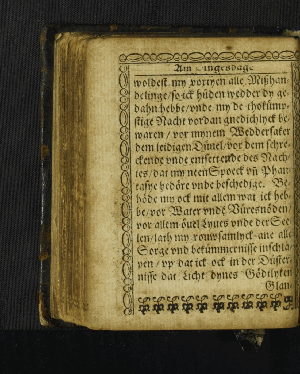 Am Dingesdage
woldest my vorryen alle Mißhan-
delinge / so ick hüden wedder dy ge-
dahn hebbe / vnde my de thokump-
stige Nacht vordan gnedichlyck be-
waren / vor mynem Weddersaker
dem leidigen Düuel / vor dem schre-
ckende vnde entsettende des Nach-
tes / dat my neen Spoeck vñ Phan-
tasye bedöre vnde beschedige. Be-
höde my ock mit allem wat ick heb-
be / vor Water vnde Vüresnöden /
vor allem öuel Lyues vnde der See-
len / lath my rouwsamlyck ane alle
Sorge vnd bekümmernisse inschla-
pen / vp dat ick ock in der Düster-
nisse dat Licht dynes Gödtlyken
Glau